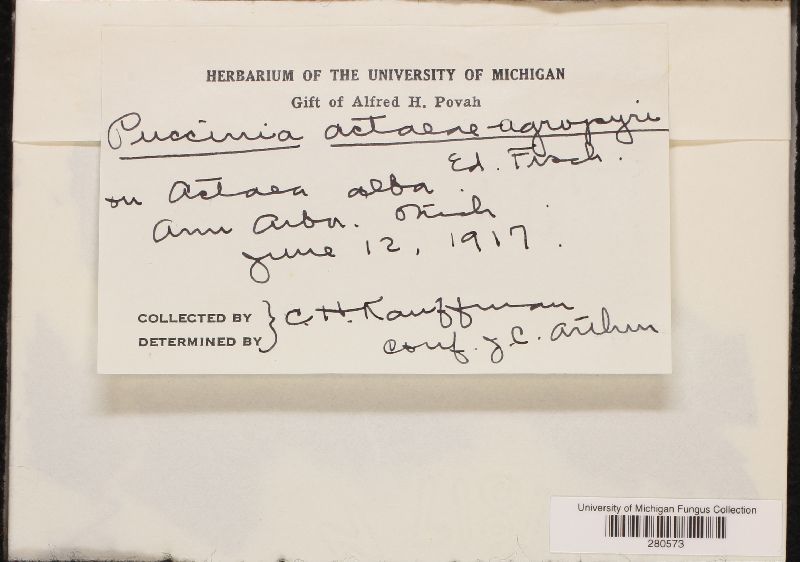 HERBARIUM OF THE UNIVERSITY OF MICHIGAN
Gift of Alfred H. Povah
Puccinia actaeae-agropyri
Ed. Fisch.
on Actaea alba.
Ann Arbor. Mich.
June 12, 1917.
COLLECTED BY
DETERMINED BY
} C. H. Kauffman
conf. J. C. Arthur
University of Michigan Fungus Collection
280573